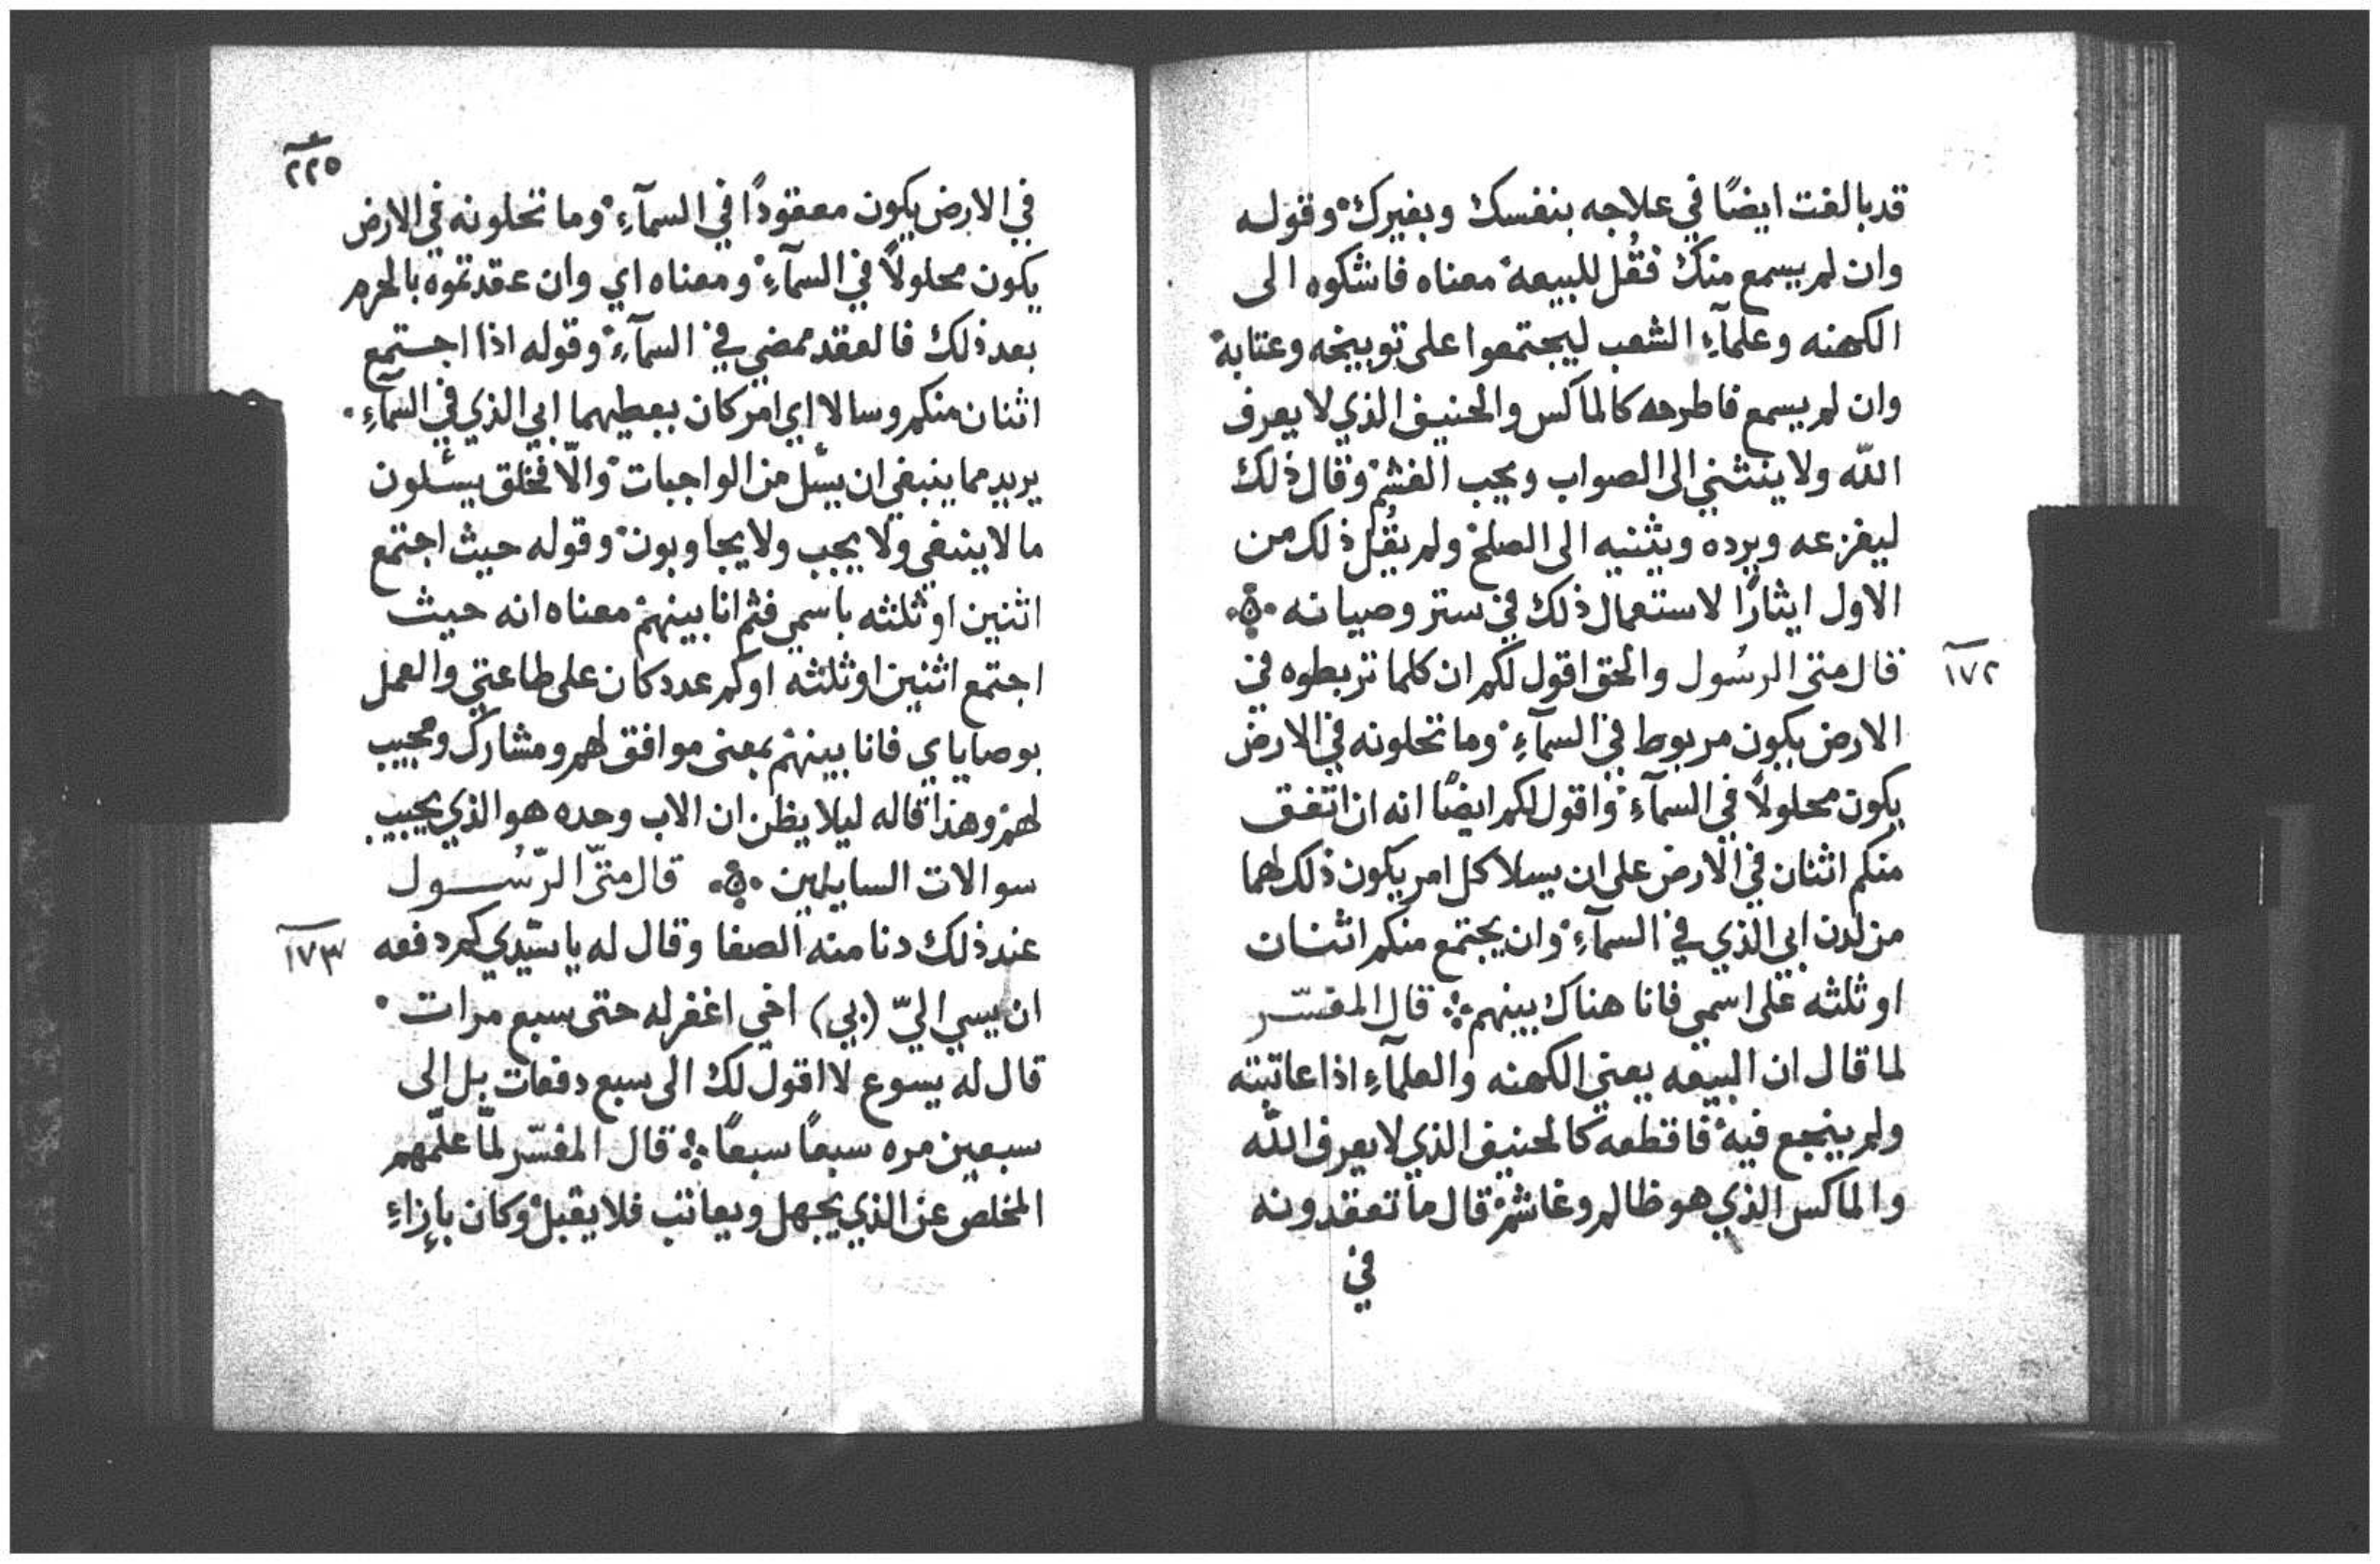 قد بالغت ايضًا في علاجه بنفسك وبغيرك وقوله
وان لم يسمع منك فقُل للبيعة معناه فاشكوه الى
الكهنه وعلمآءِ الشعب ليجتمعوا على توبيخه وعتابه
وان لم يسمع فاطرحه كالماكس والحنيف الذي لا يعرف
الله ولا ينثني الى الصواب ويجب الغشم وقال ذلك
ليفزعه ويرده ويثنيه الى الصلح ولم يقُل ذلك من
الاول ايثارًا لاستعمال ذلك في ستر وصيانه
١٧٢
قال متى الرسُول والحق اقول لكم ان كلما تربطوه في
الارض يكون مربوط في السمآءِ وما تحلونه في الارض
يكون محلولاً في السمآءِ واقول لكم ايضًا انه ان اتفق
منكم اثنان في الارض على ان يسلا كل امر يكون ذلك لهما
من لدن ابي الذي في السمآءِ وان يجتمع منكم اثنان
او ثلثه على اسمي فانا هناك بينهم ۞ قال المفسّر
لما قال ان البيعه يعني الكهنه والعلمآءِ اذا عاتبته
ولم ينجع فيه فاقطعه كالحنيف الذي لا يعرف الله
والماكس الذي هو ظالم وغاشم قال ما تعقدونه
في
٢٢٥
في الارض يكون معقودًا في السمآءِ وما تحلونه في الارض
يكون محلولاً في السمآءِ ومعناه اي وان عقدتموه بالحرم
بعد ذلك فالعقد ممضي في السمآءِ وقوله اذا اجتمع
اثنان منكم وسالا اي امر كان يعطيهما ابي الذي في السمآءِ
يريد مما ينبغي ان يسٔل من الواجبات والّا فخلق يسٔلون
ما لا ينبغي ولا يجب ولا يجاوبون وقوله حيث اجتمع
اثنين او ثلثه باسمي فثم انا بينهم معناه انه حيث
اجتمع اثنين او ثلثه اوكم عدد كان على طاعتي والعمل
بوصاياي فانا بينهم بمعنى موافق لهم ومشارك ومجيب
لهم وهذا قاله ليلا يظن ان الاب وحده هو الذي يجيب
سوالات السايلين قال متّى الرّسُول
١٧٣
عند ذلك دنا منه الصفا وقال له يا سيّدي كم دفعه
ان يسي اليّ (بي) اخي اغفر له حتى سبع مرات
قال له يسوع لا اقول لك الى سبع دفعات بل الى
سبعين مره سبعًا سبعًا ۞ قال المفسّر لمّا علّمهم
المخلص عن الذي يجهل ويعاتب فلا يقبل وكان بإزاءِ